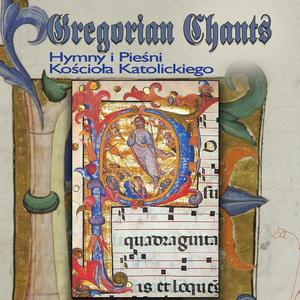 Gregorian Chants
Hymny i Pieśni
Kościoła Katolickiego
quadraginta
is et loquēs